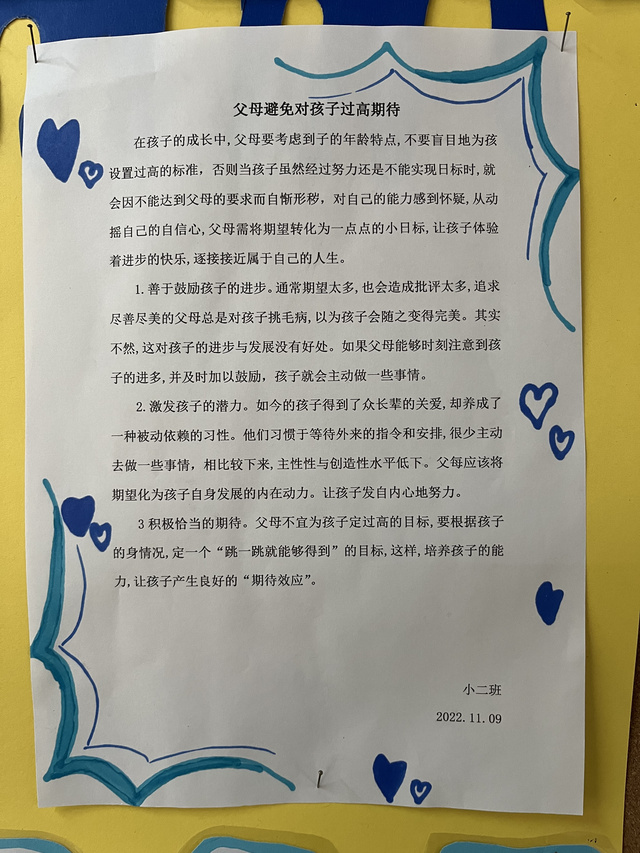 父母避免对孩子过高期待
在孩子的成长中,父母要考虑到子的年龄特点,不要盲目地为孩
设置过高的标准，否则当孩子虽然经过努力还是不能实现日标时,就
会因不能达到父母的要求而自惭形秽，对自己的能力感到怀疑,从动
摇自己的自信心,父母需将期望转化为一点点的小日标,让孩子体验
着进步的快乐,逐接接近属于自己的人生。
1.善于鼓励孩子的进步。通常期望太多,也会造成批评太多,追求
尽善尽美的父母总是对孩子挑毛病,以为孩子会随之变得完美。其实
不然,这对孩子的进步与发展没有好处。如果父母能够时刻注意到孩
子的进多,并及时加以鼓励，孩子就会主动做一些事情。
2.激发孩子的潜力。如今的孩子得到了众长辈的关爱,却养成了
一种被动依赖的习性。他们习惯于等待外来的指令和安排,很少主动
去做一些事情，相比较下来,主性性与创造性水平低下。父母应该将
期望化为孩子自身发展的内在动力。让孩子发自内心地努力。
3 积极恰当的期待。父母不宜为孩子定过高的目标,要根据孩子
的身情况,定一个“跳一跳就能够得到”的目标,这样,培养孩子的能
力,让孩子产生良好的“期待效应”。
小二班
2022.11.09